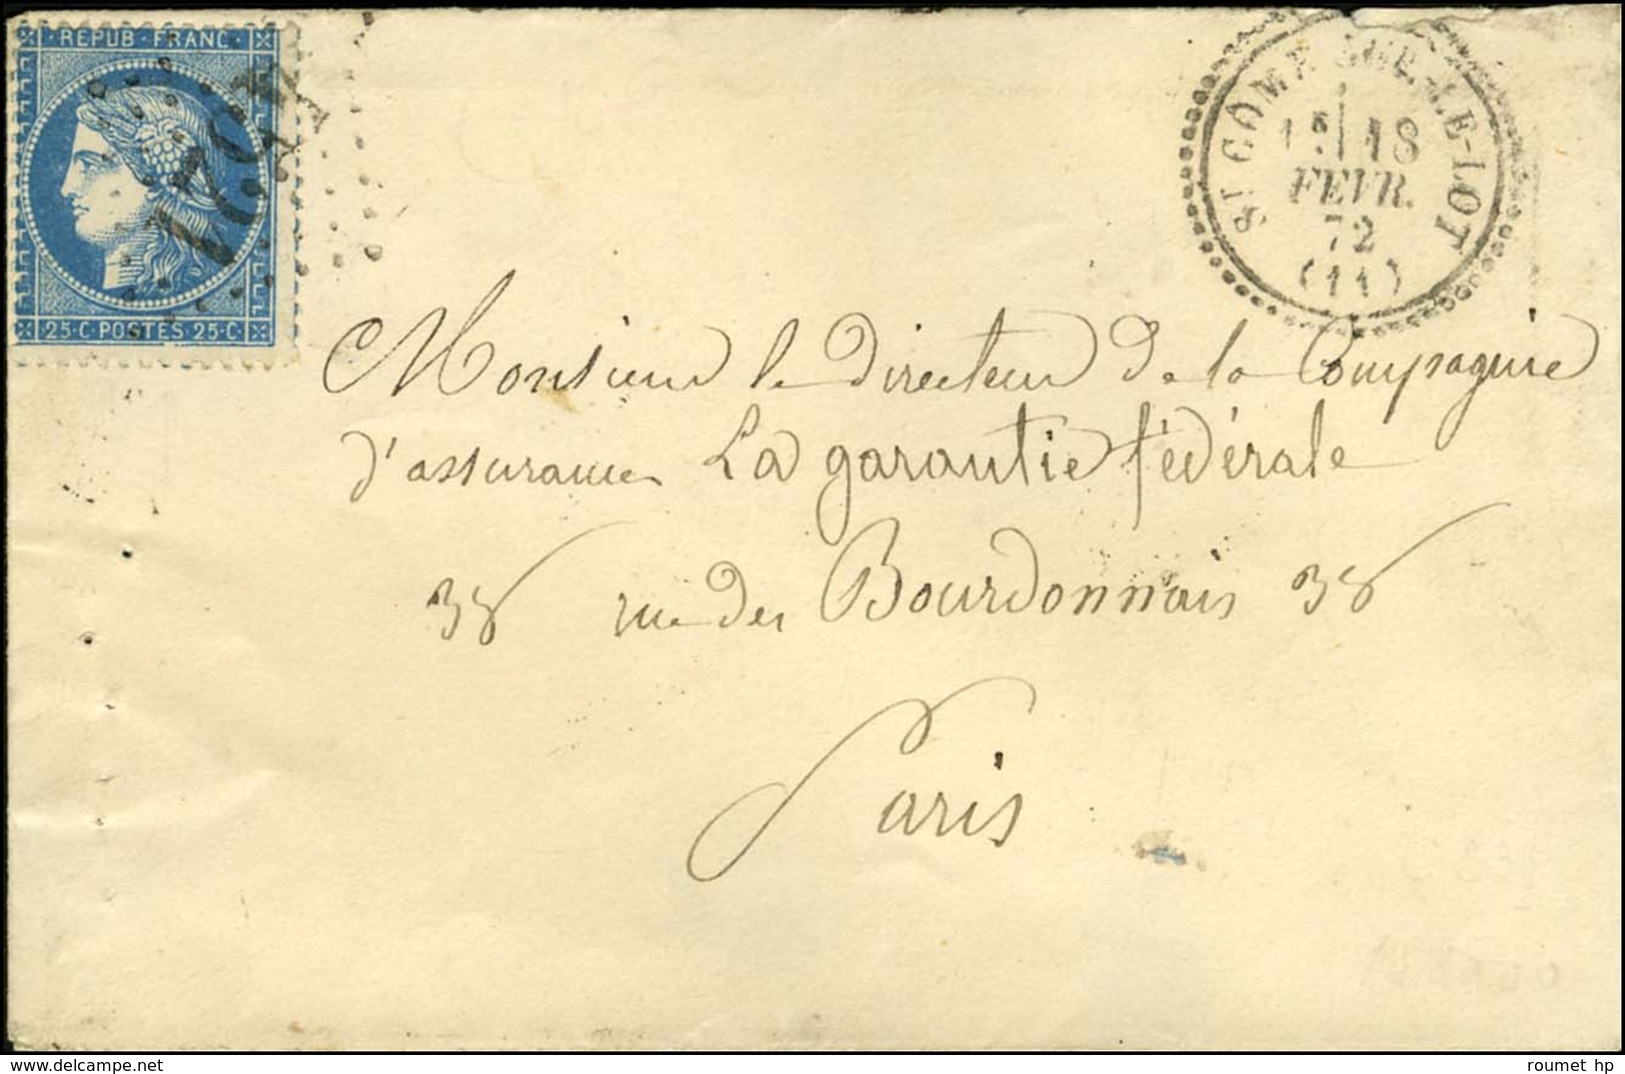 REPUB·FRANC
25·C POSTES 25·C
ST COME-SUR-LE-LOT
18
FEVR.
72
(11)
Monsieur le directeur de la Compagnie
d'assurances La garantie fédérale
38 rue des Bourdonnais 38
Paris
roumet hp